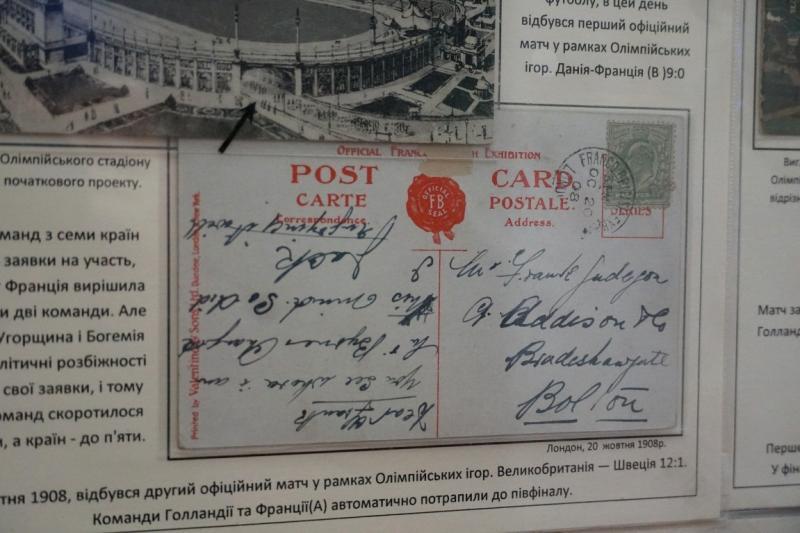 футболу, в цей день
відбувся перший офіційний
матч у рамках Олімпійських
ігор. Данія-Франція (В )9:0
Олімпійського стадіону
початкового проекту.
манд з семи країн
заявки на участь,
Франція вирішила
и дві команди. Але
Угорщина і Богемія
літичні розбіжності
свої заявки, і тому
оманд скоротилося
а країн - до п'яти.
OFFICIAL EXHIBITION
POST CARD
CARTE POSTALE.
Correspondence. Address.
OFFICIAL
FB
SEAL
SERIES
OC 20
08
Printed by Valentine & Sons, Ltd. Dundee, London
Dear Frank
you see where i am
Mr Byrnes changed
his mind. So did
I
Jack
Mr. Frank
Addison & Co
Bradeshawgate
Bolton
Лондон, 20 жовтня 1908р.
тня 1908, відбувся другий офіційний матч у рамках Олімпійських ігор. Великобританія — Швеція 12:1.
Команди Голландії та Франції(А) автоматично потрапили до півфіналу.
Виг
Олімпі
відрізн
Матч за
Голлан
Перше
У фін